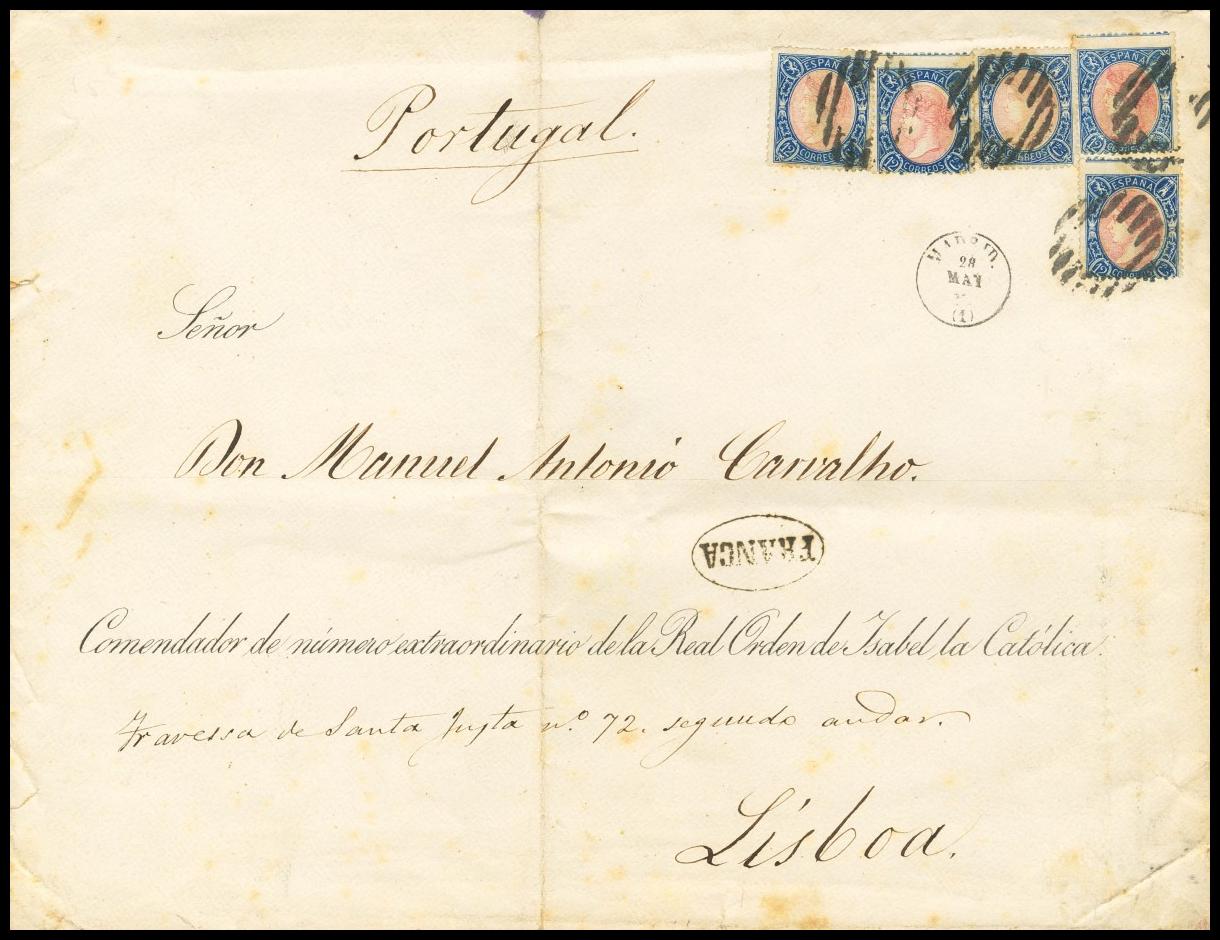 Portugal.
ESPAÑA
12 CORREOS
ESPAÑA
12 CORREOS
12 CORREOS
12
ESPAÑA
12 CORREOS
MADRID.
28
MAY
(1)
Señor
Don Manuel Antonio Carvalho.
FRANCA
Comendador de número extraordinario de la Real Orden de Isabel la Católica.
Travessa de Santa Justa nº 72. segundo andar.
Lisboa.